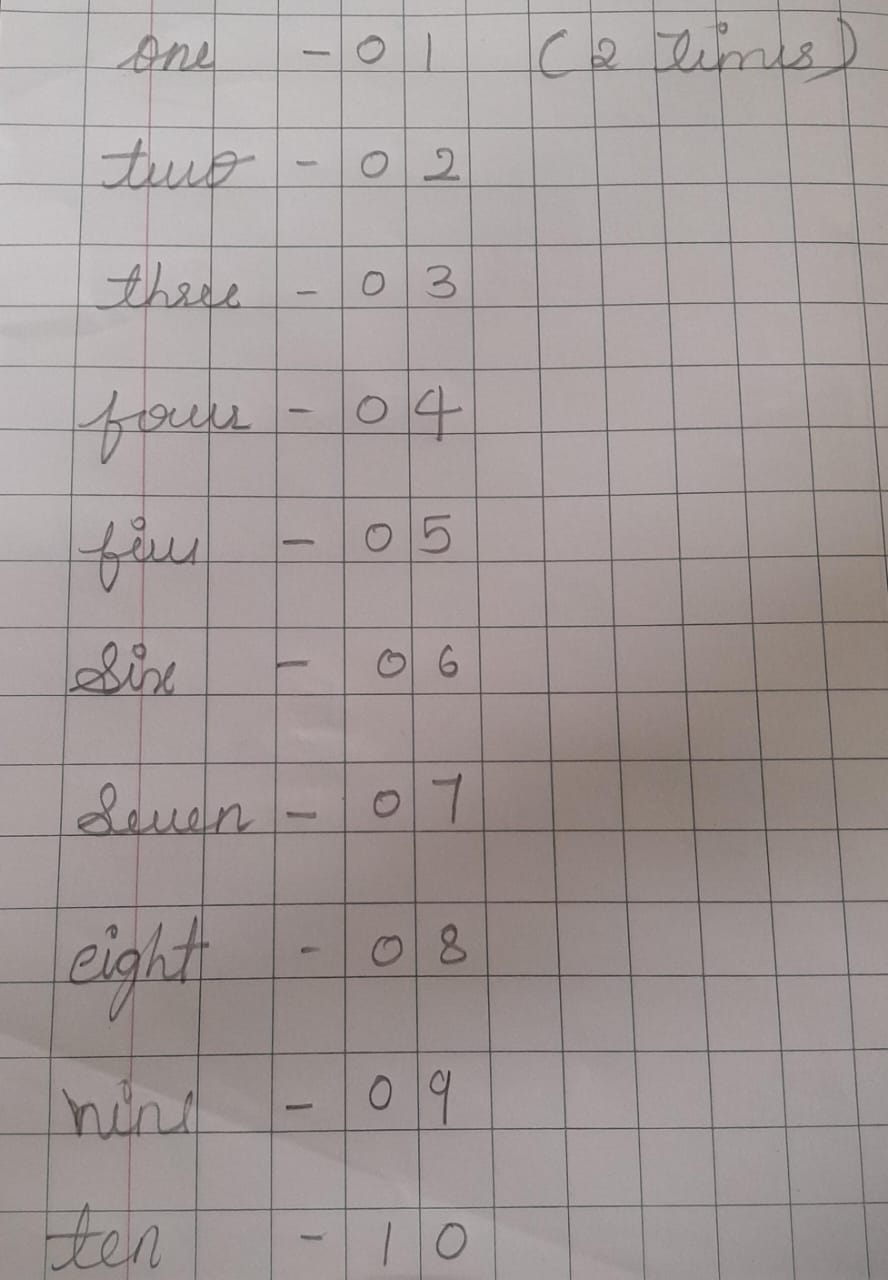 one - 01 (2 times)
two - 02
three - 03
four - 04
five - 05
Six - 06
Seven - 07
eight - 08
nine - 09
ten - 10